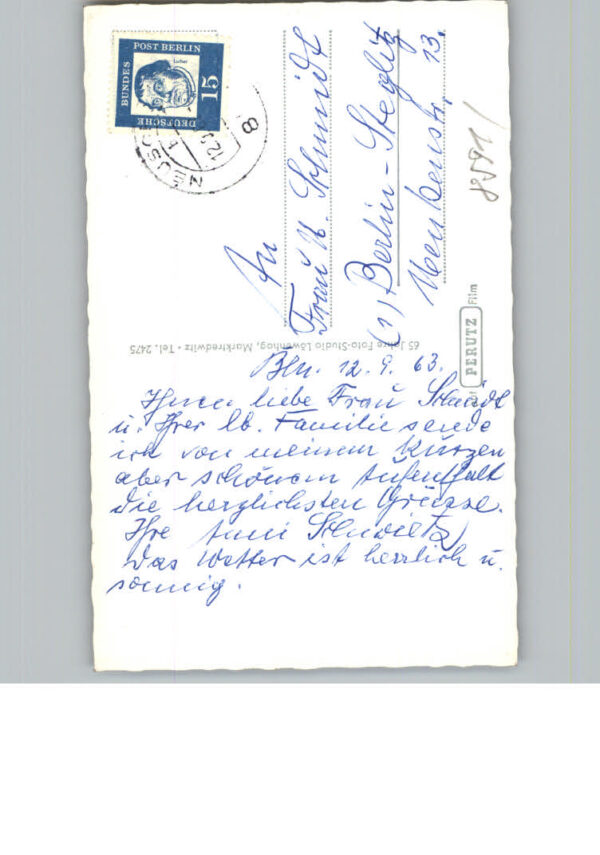 BUNDES
POST BERLIN
DEUTSCHE
Luther
15
8
An
Frau U. Schmidt
(1) Berlin-Steglitz
13.
8591/
PERUTZ Film
65 Jahre Foto-Studio Löwenhag, Marktredwitz · Tel. 2475
Bln. 12.9.63.
Ihnen liebe Frau Schmidt
u. Ihrer lb. Familie sende
ich von meinem kurzen
aber schönem Aufenthalt
die herzlichsten Grüsse.
Ihre
Das Wetter ist herrlich u.
sonnig.